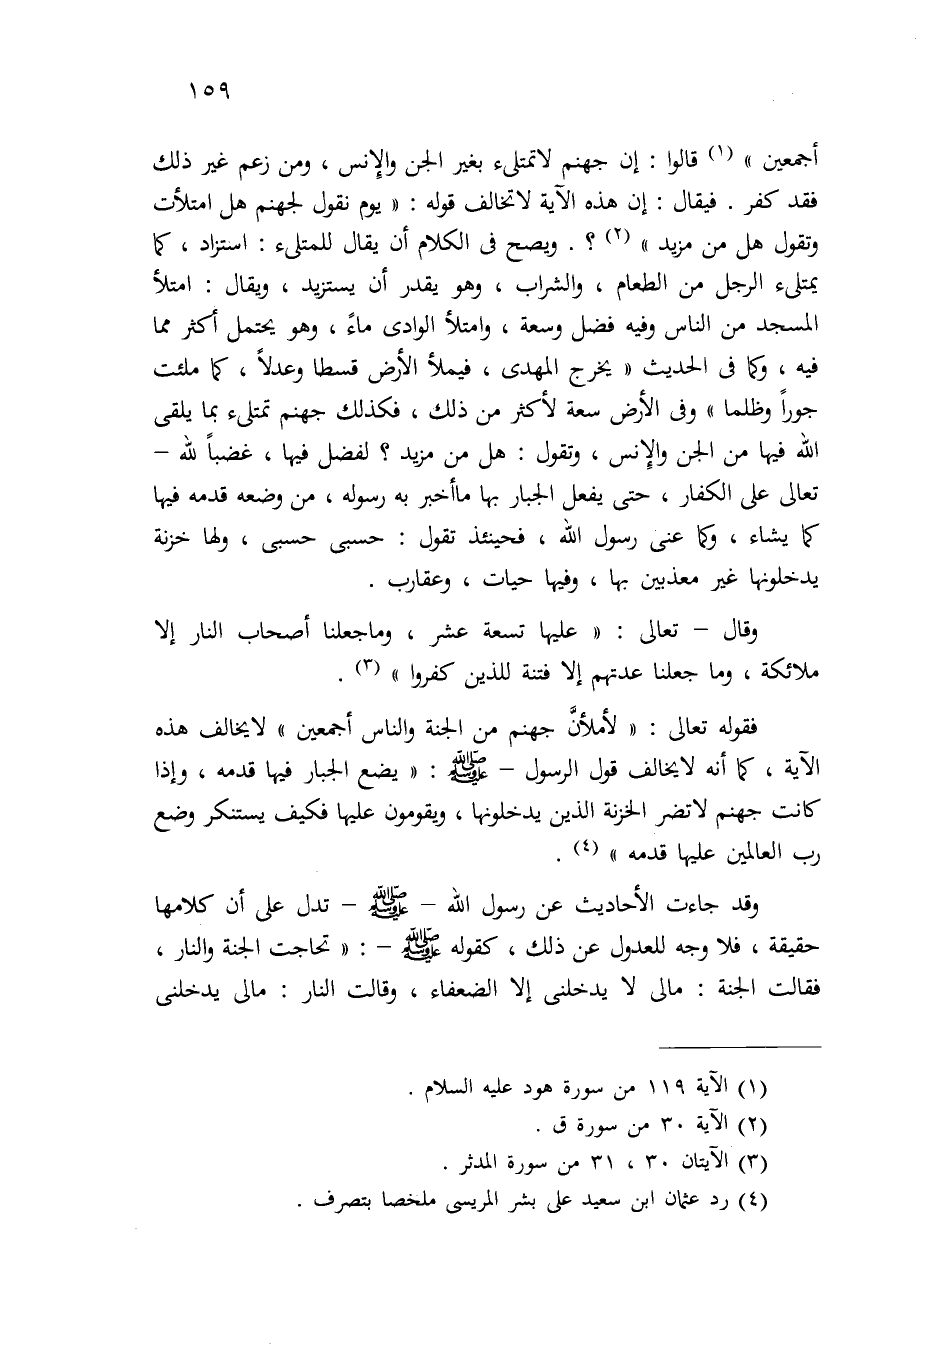 ١٥٩
أجمعين » (١) قالوا : إن جهنم لاتمتلىء بغير الجن والإنس ، ومن زعم غير ذلك
فقد كفر . فيقال : إن هذه الآية لاتخالف قوله : « يوم نقول لجهنم هل امتلأت
وتقول هل من مزيد » (٢) ؟ . ويصح فى الكلام أن يقال للمتلىء : استزاد ، كما
يمتلىء الرجل من الطعام ، والشراب ، وهو يقدر أن يستزيد ، ويقال : امتلأ
المسجد من الناس وفيه فضل وسعة ، وامتلأ الوادى ماءً ، وهو يحتمل أكثر مما
فيه ، وكما فى الحديث « يخرج المهدى ، فيملأ الأرض قسطا وعدلاً ، كما ملئت
جوراً وظلما » وفى الأرض سعة لأكثر من ذلك ، فكذلك جهنم تمتلىء بما يلقى
الله فيها من الجن والإنس ، وتقول : هل من مزيد ؟ لفضل فيها ، غضباً لله –
تعالى على الكفار ، حتى يفعل الجبار بها ماأخبر به رسوله ، من وضعه قدمه فيها
كما يشاء ، وكما عنى رسول الله ، فحينئذ تقول : حسبى حسبى ، ولها خزنة
يدخلونها غير معذبين بها ، وفيها حيات ، وعقارب .
وقال – تعالى : « عليها تسعة عشر ، وماجعلنا أصحاب النار إلا
ملائكة ، وما جعلنا عدتهم إلا فتنة للذين كفروا » (٣) .
فقوله تعالى : « لأملأنَّ جهنم من الجنة والناس أجمعين » لايخالف هذه
الآية ، كما أنه لايخالف قول الرسول – ﷺ : « يضع الجبار فيها قدمه ، وإذا
كانت جهنم لاتضر الخزنة الذين يدخلونها ، ويقومون عليها فكيف يستنكر وضع
رب العالمين عليها قدمه » (٤) .
وقد جاءت الأحاديث عن رسول الله – ﷺ – تدل على أن كلامها
حقيقة ، فلا وجه للعدول عن ذلك ، كقوله ﷺ – : « تحاجت الجنة والنار ،
فقالت الجنة : مالى لا يدخلنى إلا الضعفاء ، وقالت النار : مالى يدخلنى
(١) الآية ١١٩ من سورة هود عليه السلام .
(٢) الآية ٣٠ من سورة ق .
(٣) الآيتان ٣٠ ، ٣١ من سورة المدثر .
(٤) رد عثمان ابن سعيد على بشر المريسى ملخصا بتصرف .